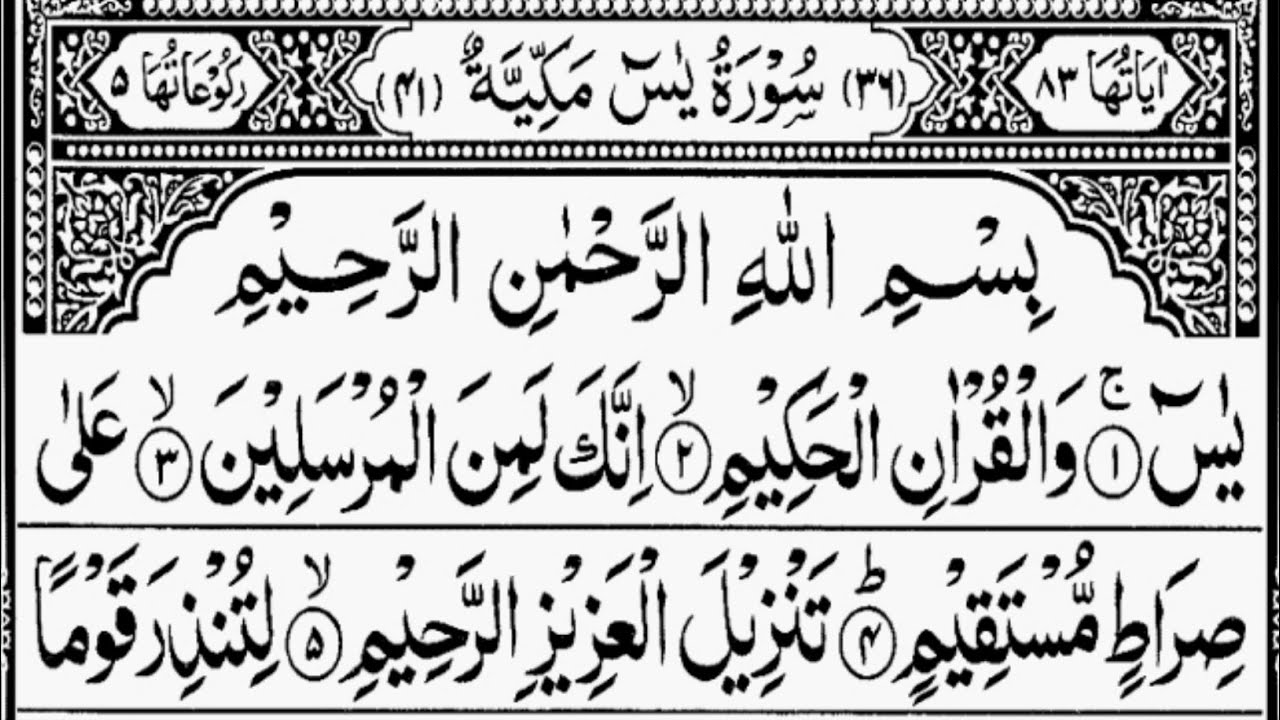 اٰيَاتُهَا ٨٣ (٣٦) سُوْرَةُ يٰسٓ مَكِّيَّةٌ (٤١) رَكُوْعَاتُهَا ۵
بِسْمِ اللّٰهِ الرَّحْمٰنِ الرَّحِيْمِ
يٰسٓ ۚ ﴿١﴾ وَالْقُرْاٰنِ الْحَكِيْمِ ۙ ﴿٢﴾ اِنَّكَ لَمِنَ الْمُرْسَلِيْنَ ۙ ﴿٣﴾ عَلٰى
صِرَاطٍ مُّسْتَقِيْمٍ ؕ ﴿۴﴾ تَنْزِيْلَ الْعَزِيْزِ الرَّحِيْمِ ۙ ﴿۵﴾ لِتُنْذِرَ قَوْمًا